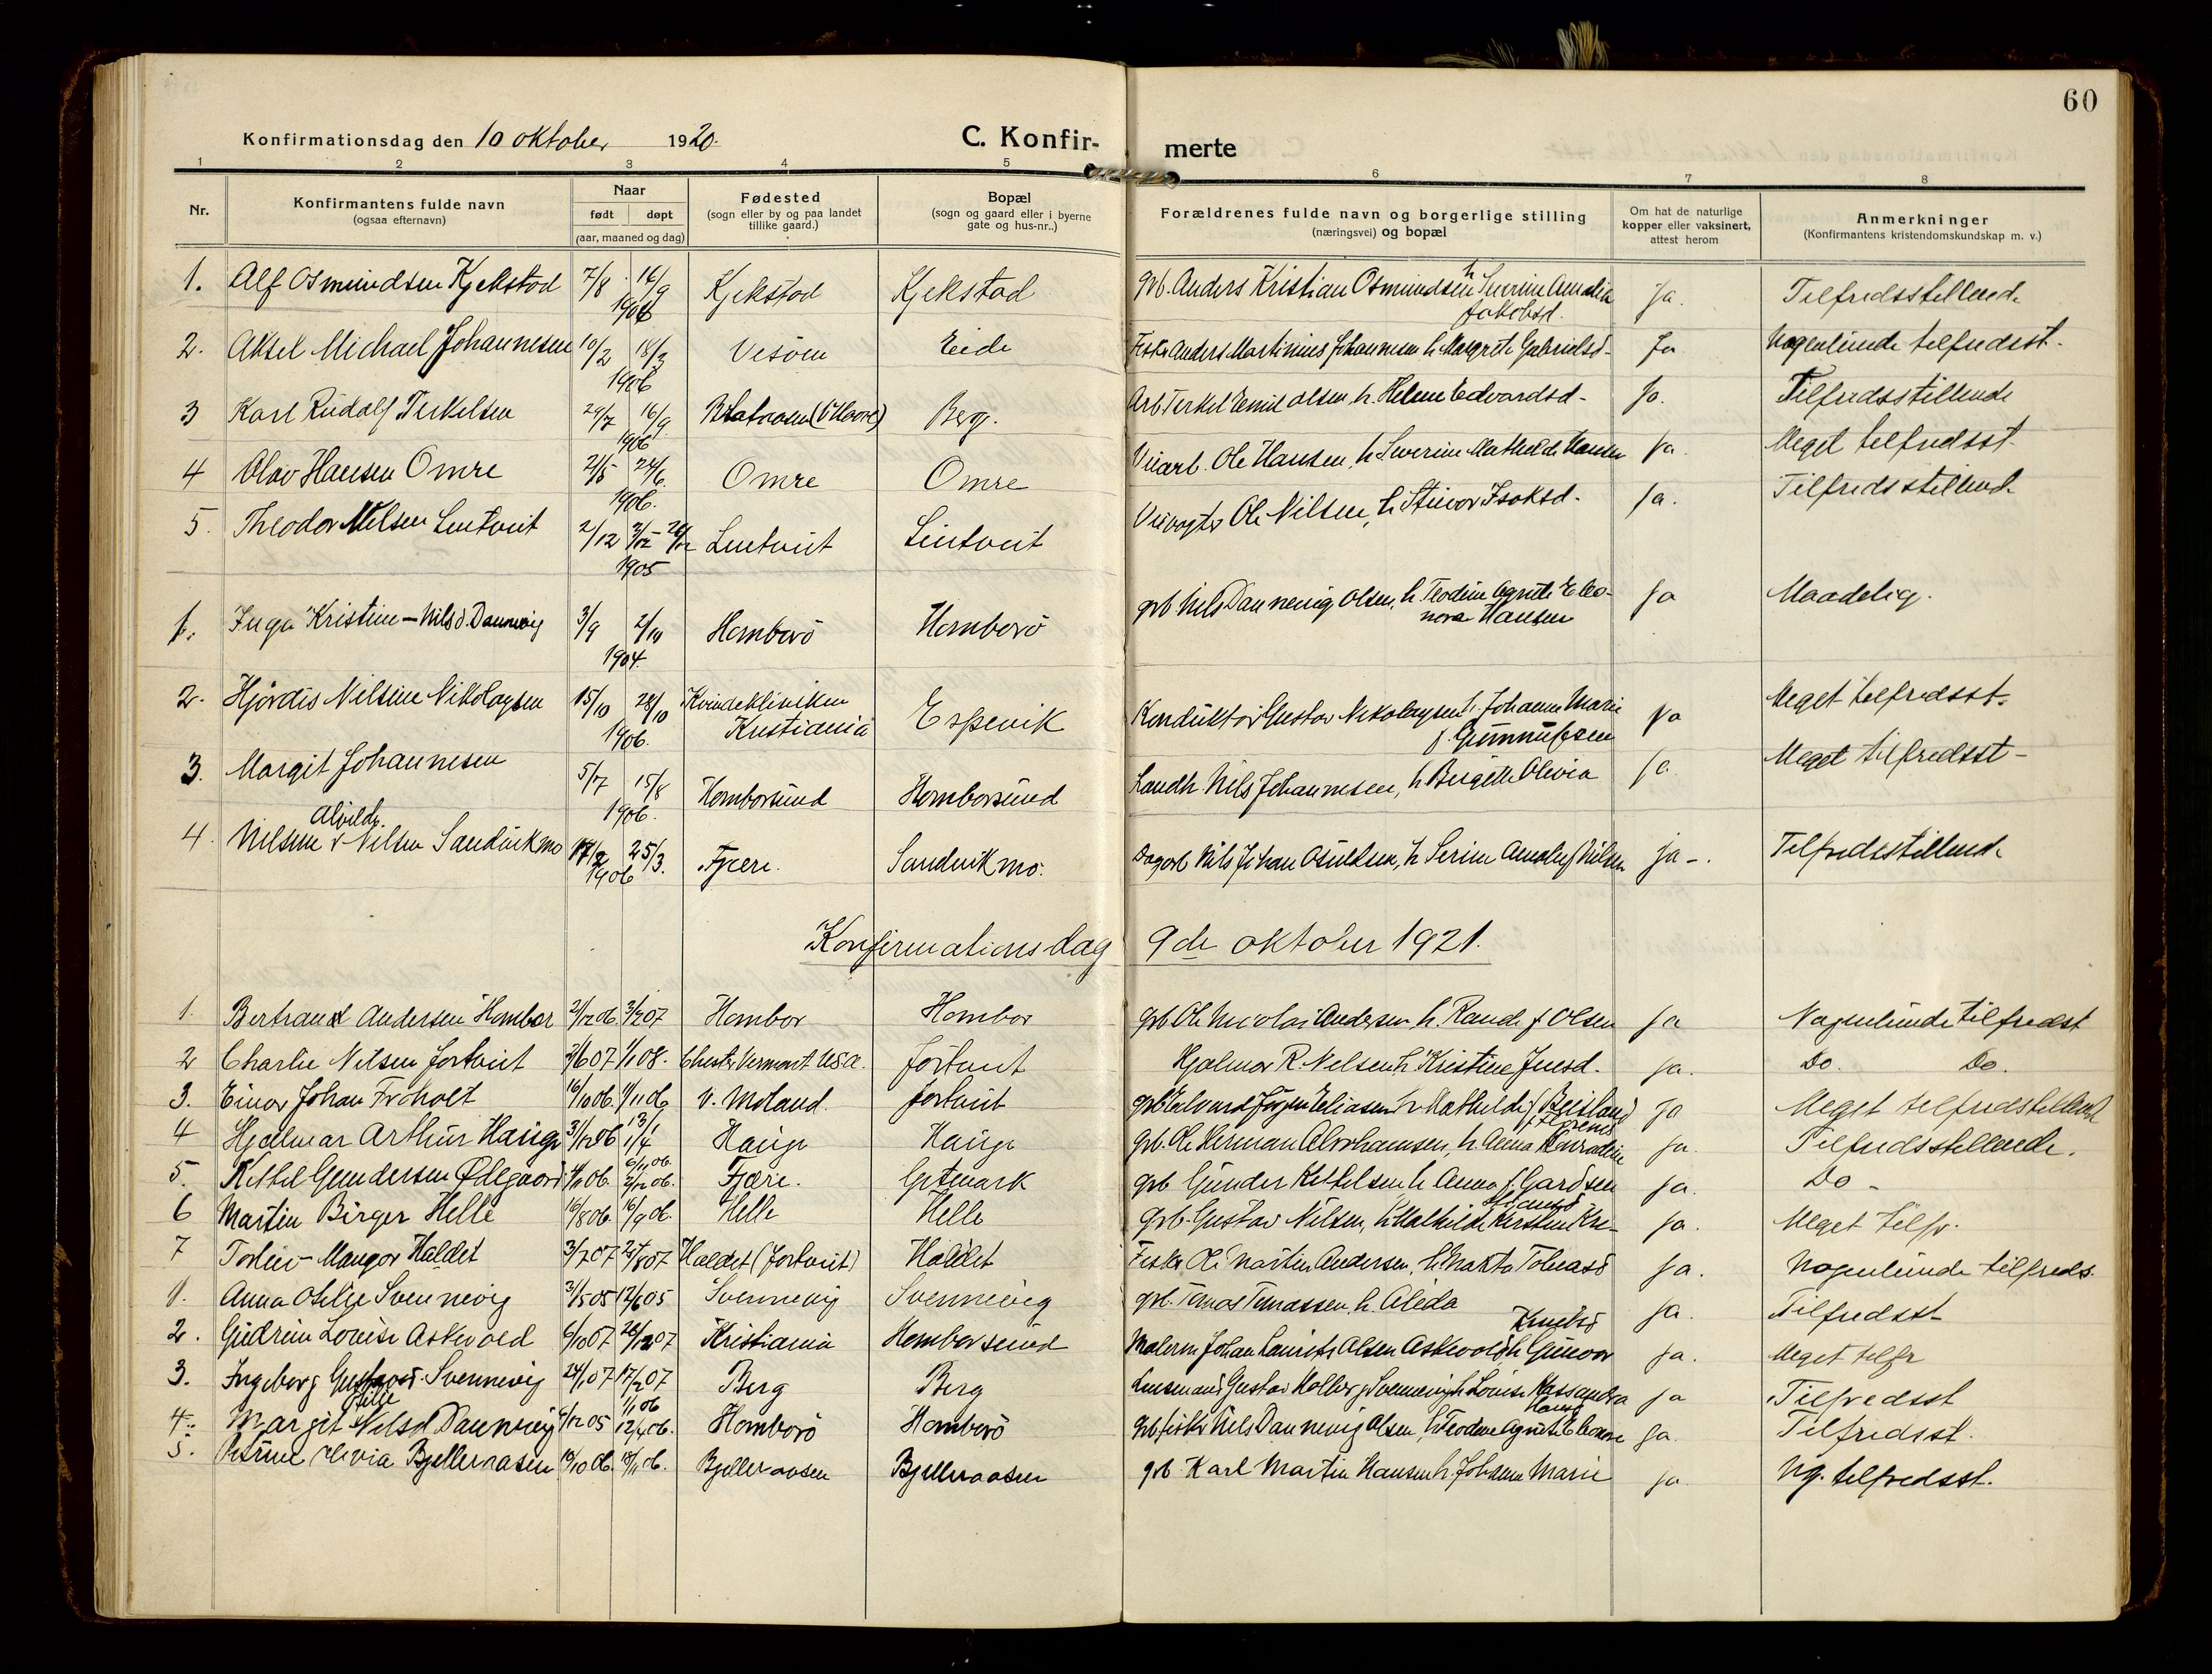 60
Konfirmationsdag den 10 oktober 1920.
C. Konfir-
merte
1 2 3 4 5 6 7 8
Nr.
Konfirmantens fulde navn
(ogsaa efternavn)
Naar
født døpt
(aar, maaned og dag)
Fødested
(sogn eller by og paa landet
tillike gaard.)
Bopæl
(sogn og gaard eller i byerne
gate og hus-nr..)
Forældrenes fulde navn og borgerlige stilling
(næringsvei) og bopæl
Om hat de naturlige
kopper eller vaksinert,
attest herom
Anmerkninger
(Konfirmantens kristendomskundskap m. v.)
1. Alf Osmundsen Kjekstad 7/8 16/9 1906 Kjekstad Kjekstad Grb. Anders Kristian Osmundsen h Severine Amalia Jakobsd. Ja. Tilfredsstillende
2. Aksel Michael Johannesen 10/2 18/3 1906 Vesøen Eide Fisker Anders Martinius Johannesen h Margrete Gabrielsd- Ja Nogenlunde tilfredsst.
3 Karl Rudolf Terkelsen 29/7 16/9 1906 Berg. Arb. Terkel Emil Olsen, h. Helene Edvardsd- Ja. Tilfredsstillende
4 Olav Hansen Omre 2/5 24/6 1906. Omre Omre Veiarb. Ole Hansen, h Severine Mathilde Hansen Ja. Meget tilfredsst
5. Theodor Nilsen Lentveit 2/12 1905 Lentveit Lentveit Veivogter Ole Nilsen, h Stinor Isaksd- Ja. Tilfredsstillende
1. Inga Kristine - Nilsd. Dannevig 3/9 2/10 1904. Homborø Homborø grb Nils Dannevig Olsen, h. Teodine Agnete Eleonora Hansen Ja Maadelig.
2. Hjørdis Nilsine Nikolaysen 15/10 28/10 1906. Kvindeklinikken Kristiania Espevik Konduktør Gustav Nikolaysen h. Johanne Marie f. Gunnufsen Ja Meget tilfredsst-
3. Margit Johannesen 5/7 15/8 1906. Homborsund Homborsund Landh. Nils Johannesen, h Birgitte Olivia Ja. Meget tilfredsst-
4. Nilsine Alvilde Nilsen Sandvikmo 17/2 25/3. 1906 Fjære. Sandvikmo. Dagarb Nils Johan Osuldsen, h Serine Amalie f Nilsen Ja-. Tilfredsstillende
Konfirmationsdag 9de oktober 1921.
1. Bertrand Andersen Hombor 2/12 06 3/2 07 Hombor Hombor grb Ole Nicolai Andersen h. Rande f Olsen Ja Nogenlunde tilfredst
2 Charlie Nilsen Jortveit 2/6 07 1/1 08. Chester Vermont U.S.A. Jortveit Hjalmar R. Nilsen h Kristine Jensd. Ja. Do. Do.
3. Einar Johan Froholt 16/10 06. 11/11 06 V. Moland. Jortveit grb Edvard Jørgen Eliasen h Mathilde f Beisland Ja Meget tilfredstillende
4 Hjalmar Arthur Hauge 31/12 06 13/1 Hauge Hauge grb. Ole Herman Abrahamsen, h. Anna Konradine Ja. Tilfredsstillende.
5. Kittel Gundersen Ødegaard 6/11 06. 2/12 06. Fjære. Getmark grb Gunder Kittelsen h Anna f. Gardsen Ja. Do -
6 Martin Birger Helle 16/8 06. 16/9 06. Helle Helle grb. Gustav Nilsen, h Mathilde Kirstine Ja. Meget tilfr.
7 Torleiv - Mangor Haldet 3/7 07 25/8 07 Haldet (Jortveit) Haldet Fisker Ole Martin Andersen, h Marta Tobiasd Ja. Nogenlunde tilfreds.
1. Anna Otilie Svennevig 31/5 05 12/6 05 Svennevig Svennevig grb. Tomas Tomassen, h. Aleda Ja. Tilfredsst-
2. Gudrun Louise Askevold 6/10 07 26/12 07 Kristiania Homborsund Malerm Johan Laurits Olsen Askevold, h Gunvor Knutsd Ja. Meget tilfr
3. Ingeborg Gustavsd. Svennevig 24/1 07 17/2 07 Berg Berg Lensmand Gustav Kolberg Svennevig h Louise Kassandra Ja Tilfredsst
4. Margit Nilsd Dannevig 12 05 12/4 06. Homborø Homborø Grb fisker Nils Dannevig Olsen, h Teodine Agnete Eleonore Hansd Ja. Tilfredsst.
5. Petrine Olivia Bjelleraasen 10/10 06. 18/11 06. Bjelleraasen Bjelleraasen grb. Karl Martin Hansen h. Johanne Marie Ja Ng. tilfredsst.